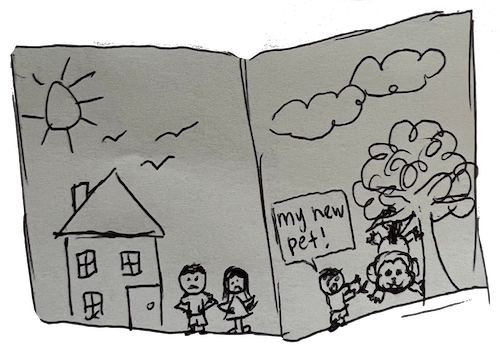 my new
pet!